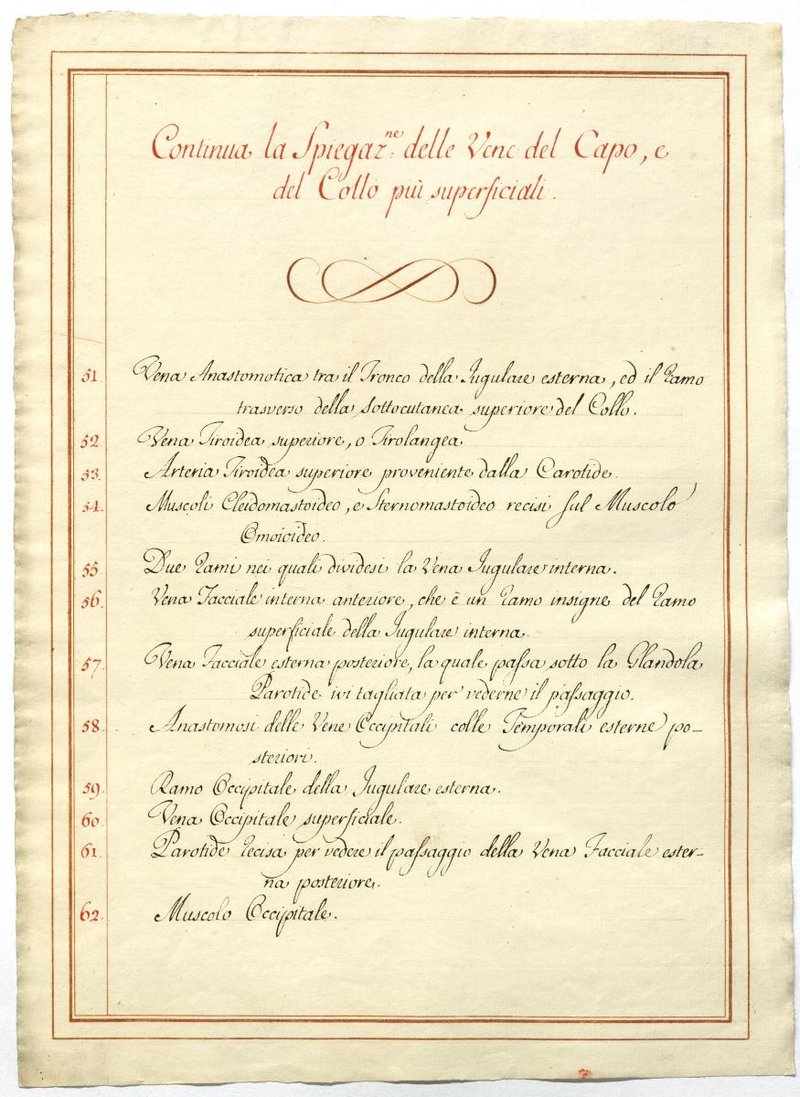 Continua la Spiegaz.ne delle Vene del Capo, e
del Collo più superficiali.
51. Vena Anastomotica tra il Tronco della Jugulare esterna, ed il Ramo
trasverso della sottocutanea superiore del Collo.
52. Vena Tiroidea superiore, o Tirolangea.
53. Arteria Tiroidea superiore proveniente dalla Carotide.
54. Muscoli Cleidomastoideo, e Sternomastoideo recisi sul Muscolo
Omoioideo.
55. Due Rami nei quali dividesi la Vena Jugulare interna.
56. Vena Facciale interna anteriore, che è un Ramo insigne del Ramo
superficiale della Jugulare interna.
57. Vena Facciale esterna posteriore, la quale passa sotto la Glandola
Parotide ivi tagliata per vederne il passaggio.
58. Anastomosi delle Vene Occipitali colle Temporali esterne po-
steriori.
59. Ramo Occipitale della Jugulare esterna.
60. Vena Occipitale superficiale.
61. Parotide recisa per vedere il passaggio della Vena Facciale ester-
na posteriore.
62. Muscolo Occipitale.